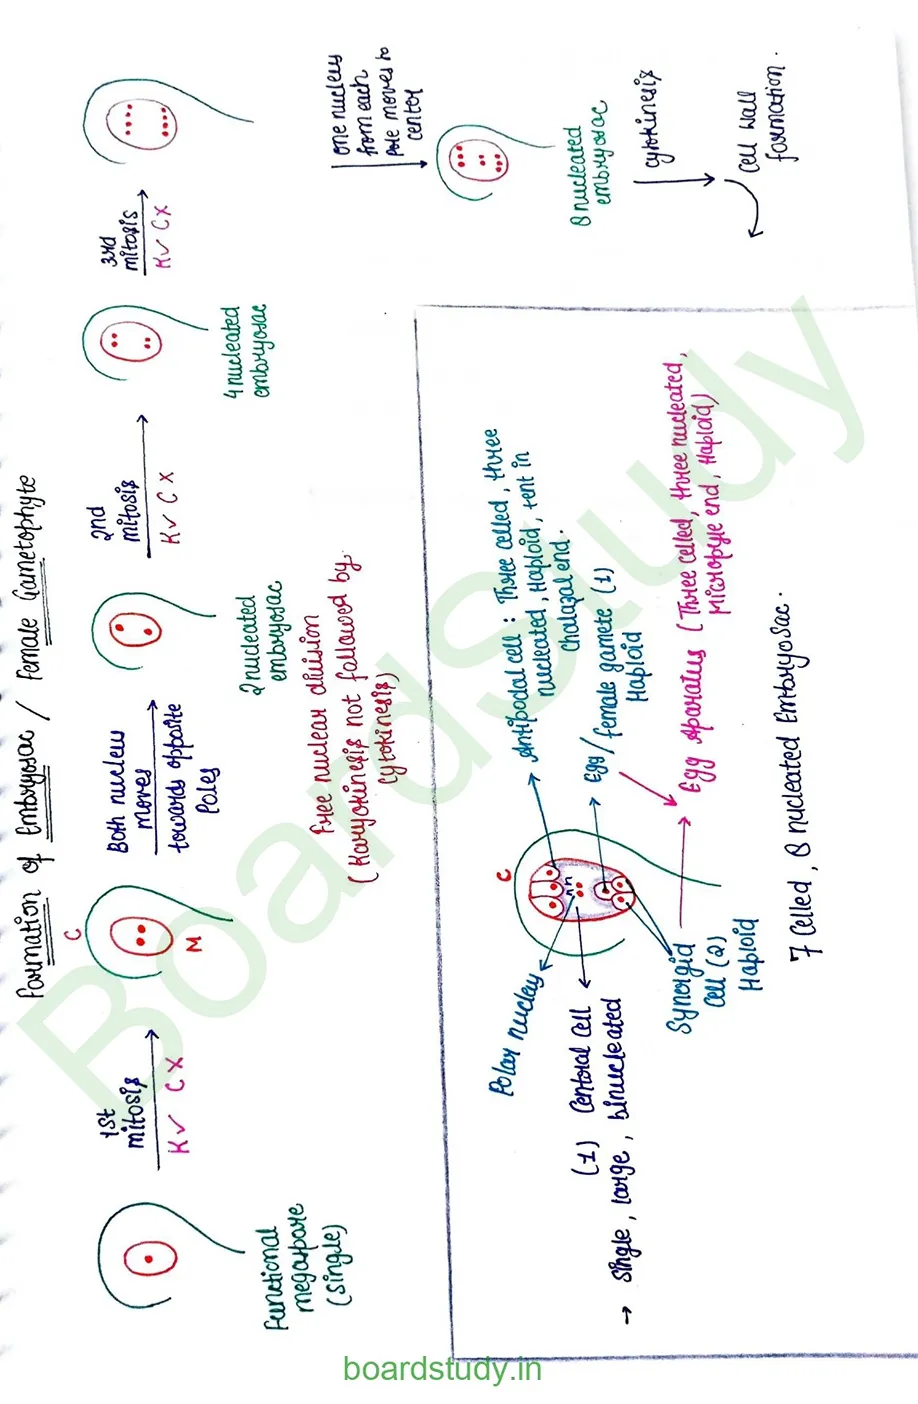 Formation of Embryosac / Female Gametophyte
1st
mitosis
K✓ C X
Functional
megaspore
(single)
C
M
Both nucleus
moves
towards opposite
Poles
2 nucleated
embryosac
2nd
mitosis
K✓ C X
4 nucleated
embryosac
3rd
mitosis
K✓ C X
Free nuclear division
(Karyokinesis not followed by
cytokinesis)
one nucleus
from each
pole moves to
center
8 nucleated
embryosac
cytokinesis
Cell wall
formation.
C
Antipodal cell : Three celled, three
nucleated, Haploid,
chalazal end.
Egg/female gamete (1)
Haploid
Egg Aparatus (Three celled, three nucleated,
Micropyle end, Haploid)
Polar nucley
n n
(1) Central Cell
→ Single, large, binucleated
Synergid
Cell (2)
Haploid
7 Celled, 8 nucleated EmbryoSac.
BoardStudy
boardstudy.in